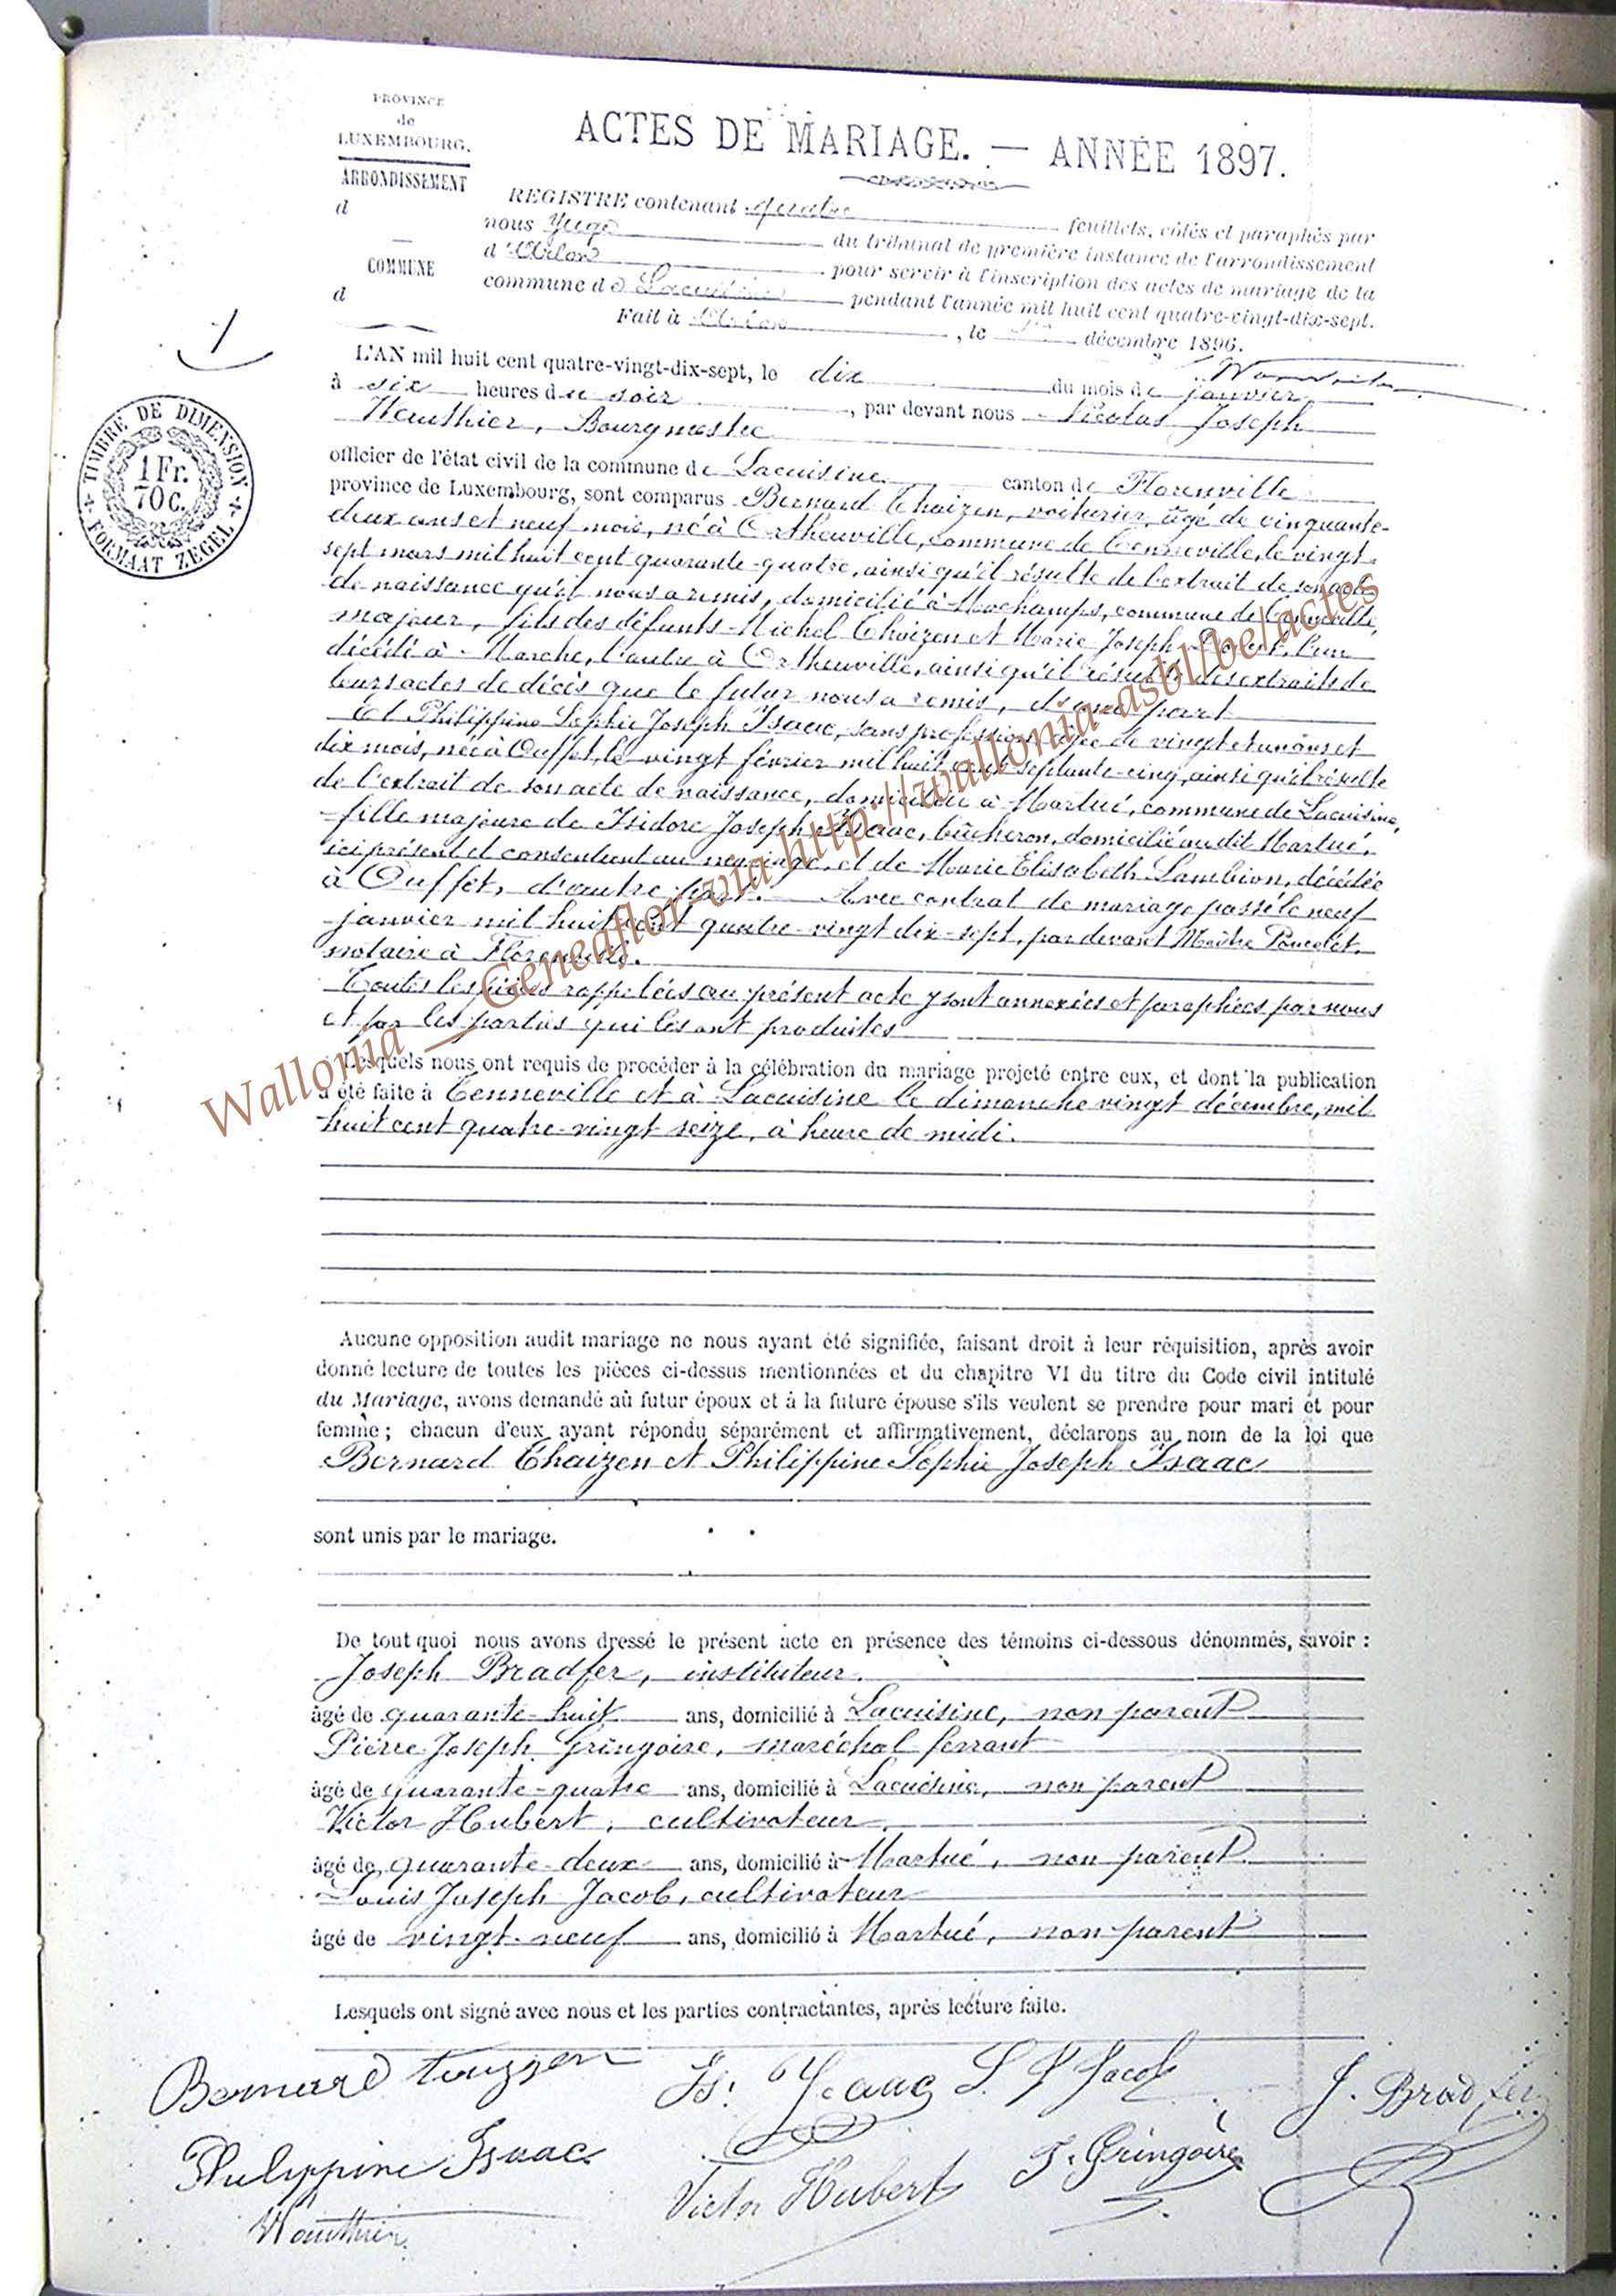 PROVINCE
de
LUXEMBOURG.
ARRONDISSEMENT
d
COMMUNE
d
ACTES DE MARIAGE. — ANNÉE 1897.
REGISTRE contenant quatre feuillets, côtés et paraphés par
nous Juge du tribunal de première instance de l'arrondissement
d'Arlon pour servir à l'inscription des actes de mariage de la
commune de Lacuisine pendant l'année mil huit cent quatre-vingt-dix-sept.
Fait à Arlon, le décembre 1896.
1
TIMBRE DE DIMENSION
1 Fr.
70 C.
FORMAAT ZEGEL
L'AN mil huit cent quatre-vingt-dix-sept, le dix du mois de janvier,
à six heures du soir, par devant nous Nicolas Joseph
Wauthier, Bourgmestre
officier de l'état civil de la commune de Lacuisine canton de Florenville
province de Luxembourg, sont comparus Bernard Thaizen, voiturier, âgé de cinquante-
deux ans et neuf mois, né à Ortheuville, commune de Tenneville, le vingt-
sept mars mil huit cent quarante-quatre, ainsi qu'il résulte de l'extrait de son acte
de naissance qu'il nous a remis, domicilié à Mochamps, commune de Tenneville,
majeur, fils des défunts Michel Thaizen et Marie Joseph l'un
décédé à Marche, l'autre à Ortheuville, ainsi qu'il résulte des extraits de
leurs actes de décès que le futur nous a remis, d'une part
Et Philippine Sophie Joseph Isaac, sans profession, âgée de vingt et un ans et
dix mois, née à Ouffet, le vingt février mil huit cent septante-cinq, ainsi qu'il résulte
de l'extrait de son acte de naissance, domiciliée à Martué, commune de Lacuisine,
fille majeure de Isidore Joseph Isaac, bûcheron, domicilié au dit Martué,
ici présent et consentant au mariage, et de Marie Elisabeth Lambion, décédée
à Ouffet, d'autre part. Avec contrat de mariage passé le neuf
janvier mil huit cent quatre-vingt dix-sept, par devant Maître Poncelet,
notaire à Florenville.
Toutes les pièces rappelées au présent acte y sont annexées et paraphées par nous
et par les parties qui les ont produites
Lesquels nous ont requis de procéder à la célébration du mariage projeté entre eux, et dont la publication
a été faite à Tenneville et à Lacuisine le dimanche vingt décembre, mil
huit cent quatre-vingt seize, à heure de midi.
Wallonia__Geneaflor via http://wallonia-asbl/be/actes
Aucune opposition audit mariage ne nous ayant été signifiée, faisant droit à leur réquisition, après avoir
donné lecture de toutes les pièces ci-dessus mentionnées et du chapitre VI du titre du Code civil intitulé
du Mariage, avons demandé au futur époux et à la future épouse s'ils veulent se prendre pour mari et pour
femme ; chacun d'eux ayant répondu séparément et affirmativement, déclarons au nom de la loi que
Bernard Thaizen et Philippine Sophie Joseph Isaac
sont unis par le mariage.
De tout quoi nous avons dressé le présent acte en présence des témoins ci-dessous dénommés, savoir :
Joseph Bradfer, instituteur.
âgé de quarante-huit ans, domicilié à Lacuisine, non parent
Pierre Joseph Gringoire, maréchal ferrant
âgé de quarante-quatre ans, domicilié à Lacuisine, non parent
Victor Hubert, cultivateur
âgé de quarante-deux ans, domicilié à Martué, non parent
Louis Joseph Jacob, cultivateur
âgé de vingt-neuf ans, domicilié à Martué, non parent
Lesquels ont signé avec nous et les parties contractantes, après lecture faite.
Bernard Is. Isaac L. J. Jacob J. Bradfer
Philippine Isaac Victor Hubert J. Gringoire
Wauthier